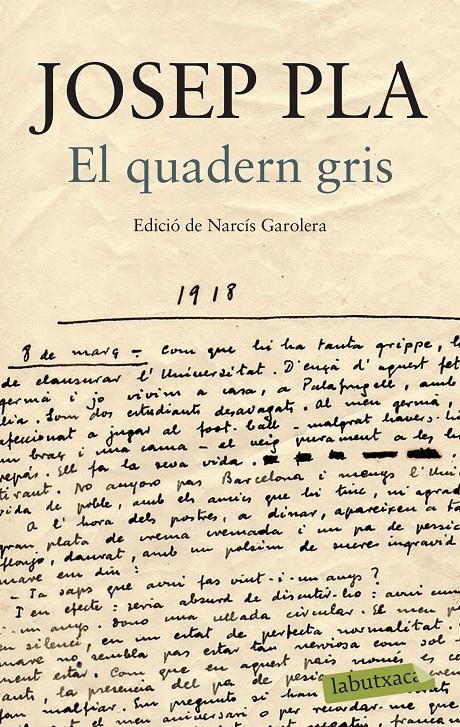 JOSEP PLA
El quadern gris
Edició de Narcís Garolera
1918
8 de març – Com que hi ha tanta grippe, h
de clausurar l'Universitat. D'ençà d'aquest fet
germà i jo vivim a casa, a Palafrugell, amb
lia. Som dos estudiants desvagats. Al meu germà,
afeccionat a jugar al foot-ball – malgrat haver-hi
un braç i una cama – el veig purament a les h
repàs. Ell fa la seva vida.
tirant. No anyoro pas Barcelona i menys l'Uni
vida de poble, amb els amics que hi tinc, m'agrad
A l'hora dels postres, a dinar, apareixen a ta
gran plata de crema cremada i un pa de pessic
flongo, daurat, amb un polsim de sucre ingravid
mare em diu:
– Ja saps que avui fas vint-i-un anys?
I en efecte: seria absurd de discutir-ho: avui cum
i-un anys. Dono una ullada circular. El meu p
en silenci, en un estat de perfecta normalitat.
mare no sembla pas estar tan nerviosa com sol
ment estar. Com que en aquest país només es ce
ants, la presencia del pa de pessic
fan malfiar. Em pregunto si han
t el meu aniversari o per recordar-me que
labutxaca